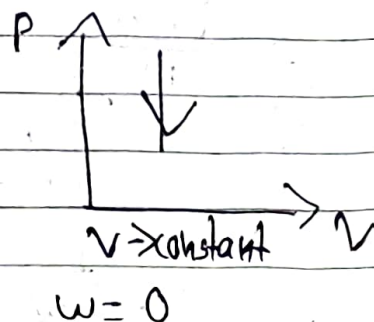 P
V → constant V
w = 0